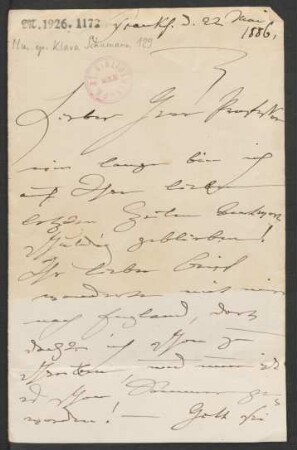 DK. 1926. 1172
Mus. ep. Klara Schumann 129
Frankf. d. 22 Mai
1886.
Lieber Herr Professor
wie lange bin ich
auf Ihre lieben
letzten Zeilen Antwort
schuldig geblieben!
Ihr lieber Brief
wanderte mit mir
nach England, dort
dachte ich schon zu
schreiben, und nun ist
es schon Sommer ge-
worden! — Gott sei